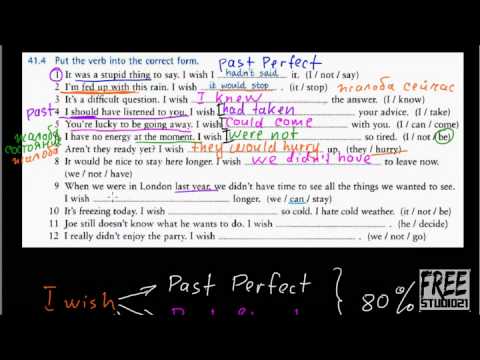 41.4 Put the verb into the correct form. past Perfect
1 It was a stupid thing to say. I wish I hadn't said it. (I / not / say)
2 I'm fed up with this rain. I wish it would stop. (it / stop) жалоба сейчас
3 It's a difficult question. I wish I knew the answer. (I / know)
past 4 I should have listened to you. I wish I had taken your advice. (I / take)
5 You're lucky to be going away. I wish I could come with you. (I / can / come)
жалоба состояние 6 I have no energy at the moment. I wish I were not so tired. (I / not / be)
жалоба 7 Aren't they ready yet? I wish they would hurry up. (they / hurry)
8 It would be nice to stay here longer. I wish we didn't have to leave now.
(we / not / have)
9 When we were in London last year, we didn't have time to see all the things we wanted to see.
I wish longer. (we / can / stay)
10 It's freezing today. I wish so cold. I hate cold weather. (it / not / be)
11 Joe still doesn't know what he wants to do. I wish (he / decide)
12 I really didn't enjoy the party. I wish (we / not / go)
I wish
Past Perfect
80%
FREE
STUDIO21